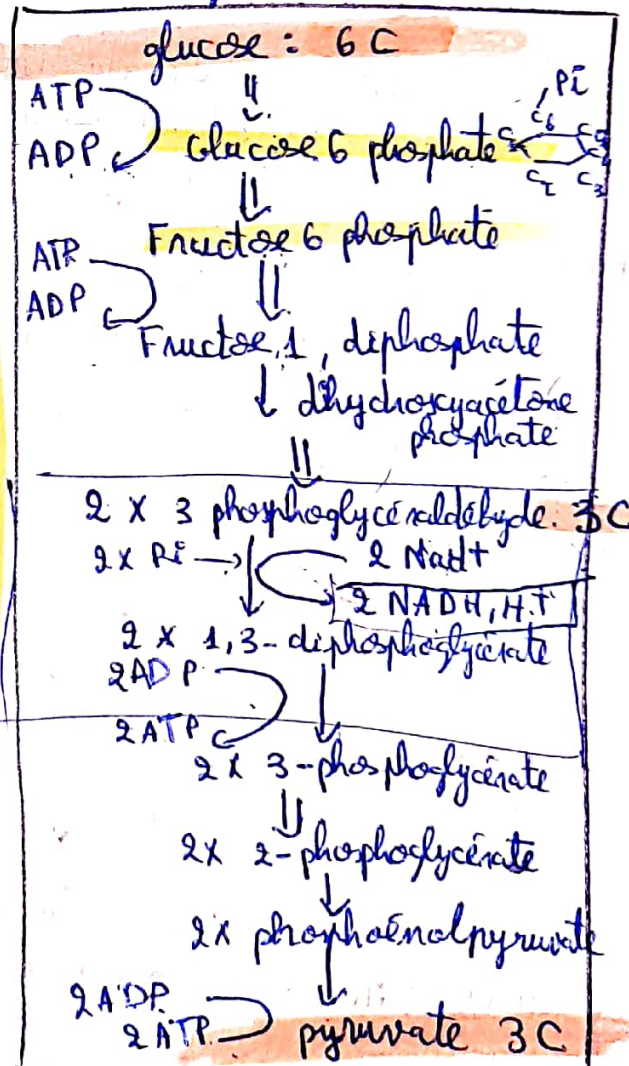 glucose : 6 C
ATP
ADP
Pi
Glucose 6 phosphate
C6
C2
C3
Fructose 6 phosphate
ATP
ADP
Fructose, 1, diphosphate
dihydroxyacétone
phosphate
2 x 3 phosphoglycéraldéhyde. 3C
2 x Pi
2 Nad+
2 NADH, H+
2 x 1,3- diphosphoglycérate
2ADP
2ATP
2 x 3-phosphoglycérate
2x 2-phosphoglycérate
2x phosphoénolpyruvate
2ADP
2ATP
pyruvate 3C